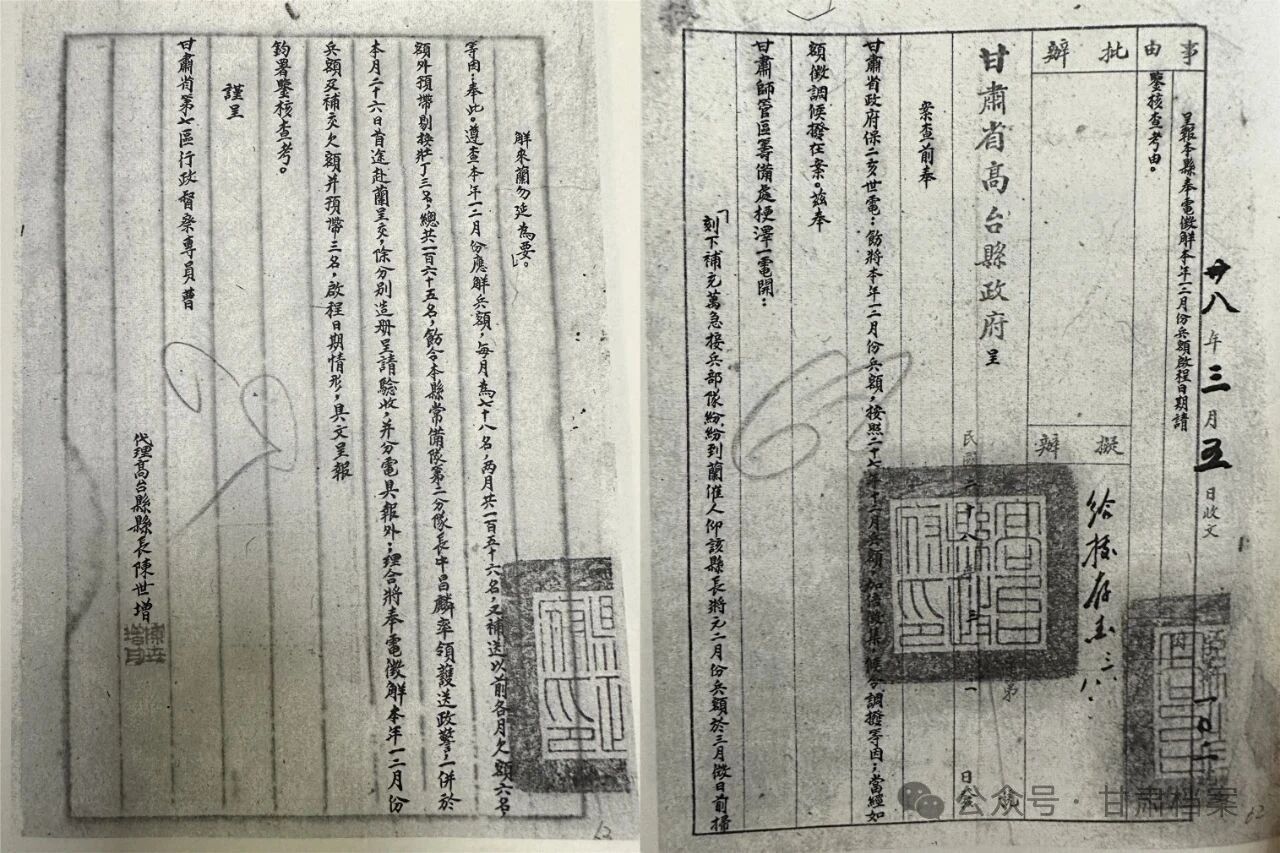 廿八年三月五日收文
事由
呈報本縣奉電徵解本年一二月份兵額啟程日期請
鑒核查考由。
批辦
擬辦
給核存查 三八
甘肅省高台縣政府呈
民國二十八年三月一日
案查前奉
甘肅省政府保二亥世電：飭將本年一二月份兵額，按照二十七年十二月兵額加倍徵集，候令調撥等因；當經如
額徵調候撥在案。茲奉
甘肅師管區籌備處梗澤一電開：
「刻下補充萬急接兵部隊紛紛到蘭催人仰該縣長將元二月份兵額於三月微日前掃
解來蘭勿延為要。」
等因；奉此。遵查本年一二月份應解兵額，每月為七十八名，两月共一百五十六名，又補送以前各月欠額六名，
額外預帶剔换壯丁三名，總共一百六十五名，飭令本縣常備隊第二分隊長申昌麟率領護送政警，一併於
本月二十六日首途赴蘭呈交，除分別造册呈請驗收，并分電具報外；理合將奉電徵解本年一二月份
兵額及補交欠額并預帶三名，啟程日期情形，具文呈報
鈞署鑒核查考。
謹呈
甘肅省第七區行政督察專員曹
代理高台縣縣長陳世增
62
公众号 · 甘肃档案
62